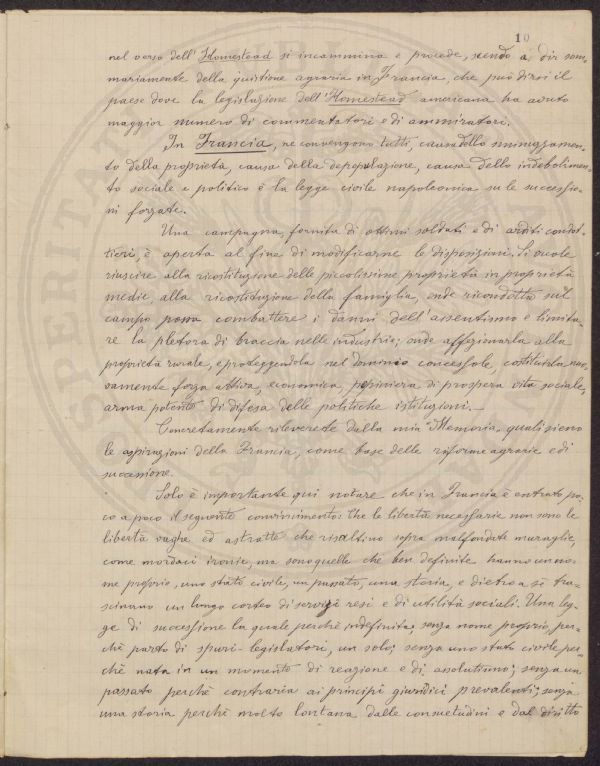 10
nel verso dell'Homestead si incammina e procede, scendo a dir som,
mariamente della quistione agraria in Francia, che può dirsi il
paese dove la legislazione dell'Homestead americana ha avuto
maggior numero di commentatori e di ammiratori.
In Francia, ne convengono tutti, causa dello sminuzzamen,
to della proprietà, causa della depopolazione, causa dello indebolimen,
to sociale e politico è la legge civile napoleonica su le successio,
ni forzate.
Una campagna, fornita di ottimi soldati e di arditi condot,
tieri, è aperta al fine di modificarne le disposizioni. Si vuole
riuscire alla ricostituzione delle piccolissime proprietà in proprietà
medie, alla ricostituzione della famiglia, onde ricondotta sul
campo possa combattere i danni dell'assentismo e limita,
re la pletora di braccia nelle industrie; onde affezionarla alla
proprietà rurale, e proteggendola nel dominio concessole, costituirla nuo,
vamente forza attiva, economica, primiera di prospera vita sociale,
arma potente di difesa delle politiche istituzioni.—
Concretamente rileverete dalla mia "Memoria" quali sieno
le aspirazioni della Francia, come base delle riforme agrarie e di
successione.
Solo è importante qui notare che in Francia è entrato po,
co a poco il seguente convincimento: Che le libertà necessarie non sono le
libertà vaghe ed astratte che risaltino sopra malfondate muraglie,
come mordaci ironie, ma sono quelle che ben definite hanno un no,
me proprio, uno stato civile, un passato, una storia, e dietro a sè tra,
scinano un lungo corteo di servizi resi e di utilità sociali. Una leg,
ge di successione la quale perchè indefinita, senza nome proprio, per,
chè parto di spuri legislatori, un solo; senza uno stato civile, per,
chè nata in un momento di reazione e di assolutismo; senza un
passato perchè contraria ai principî giuridici prevalenti; senza
una storia perchè molto lontana dalle consuetudini e dal diritto